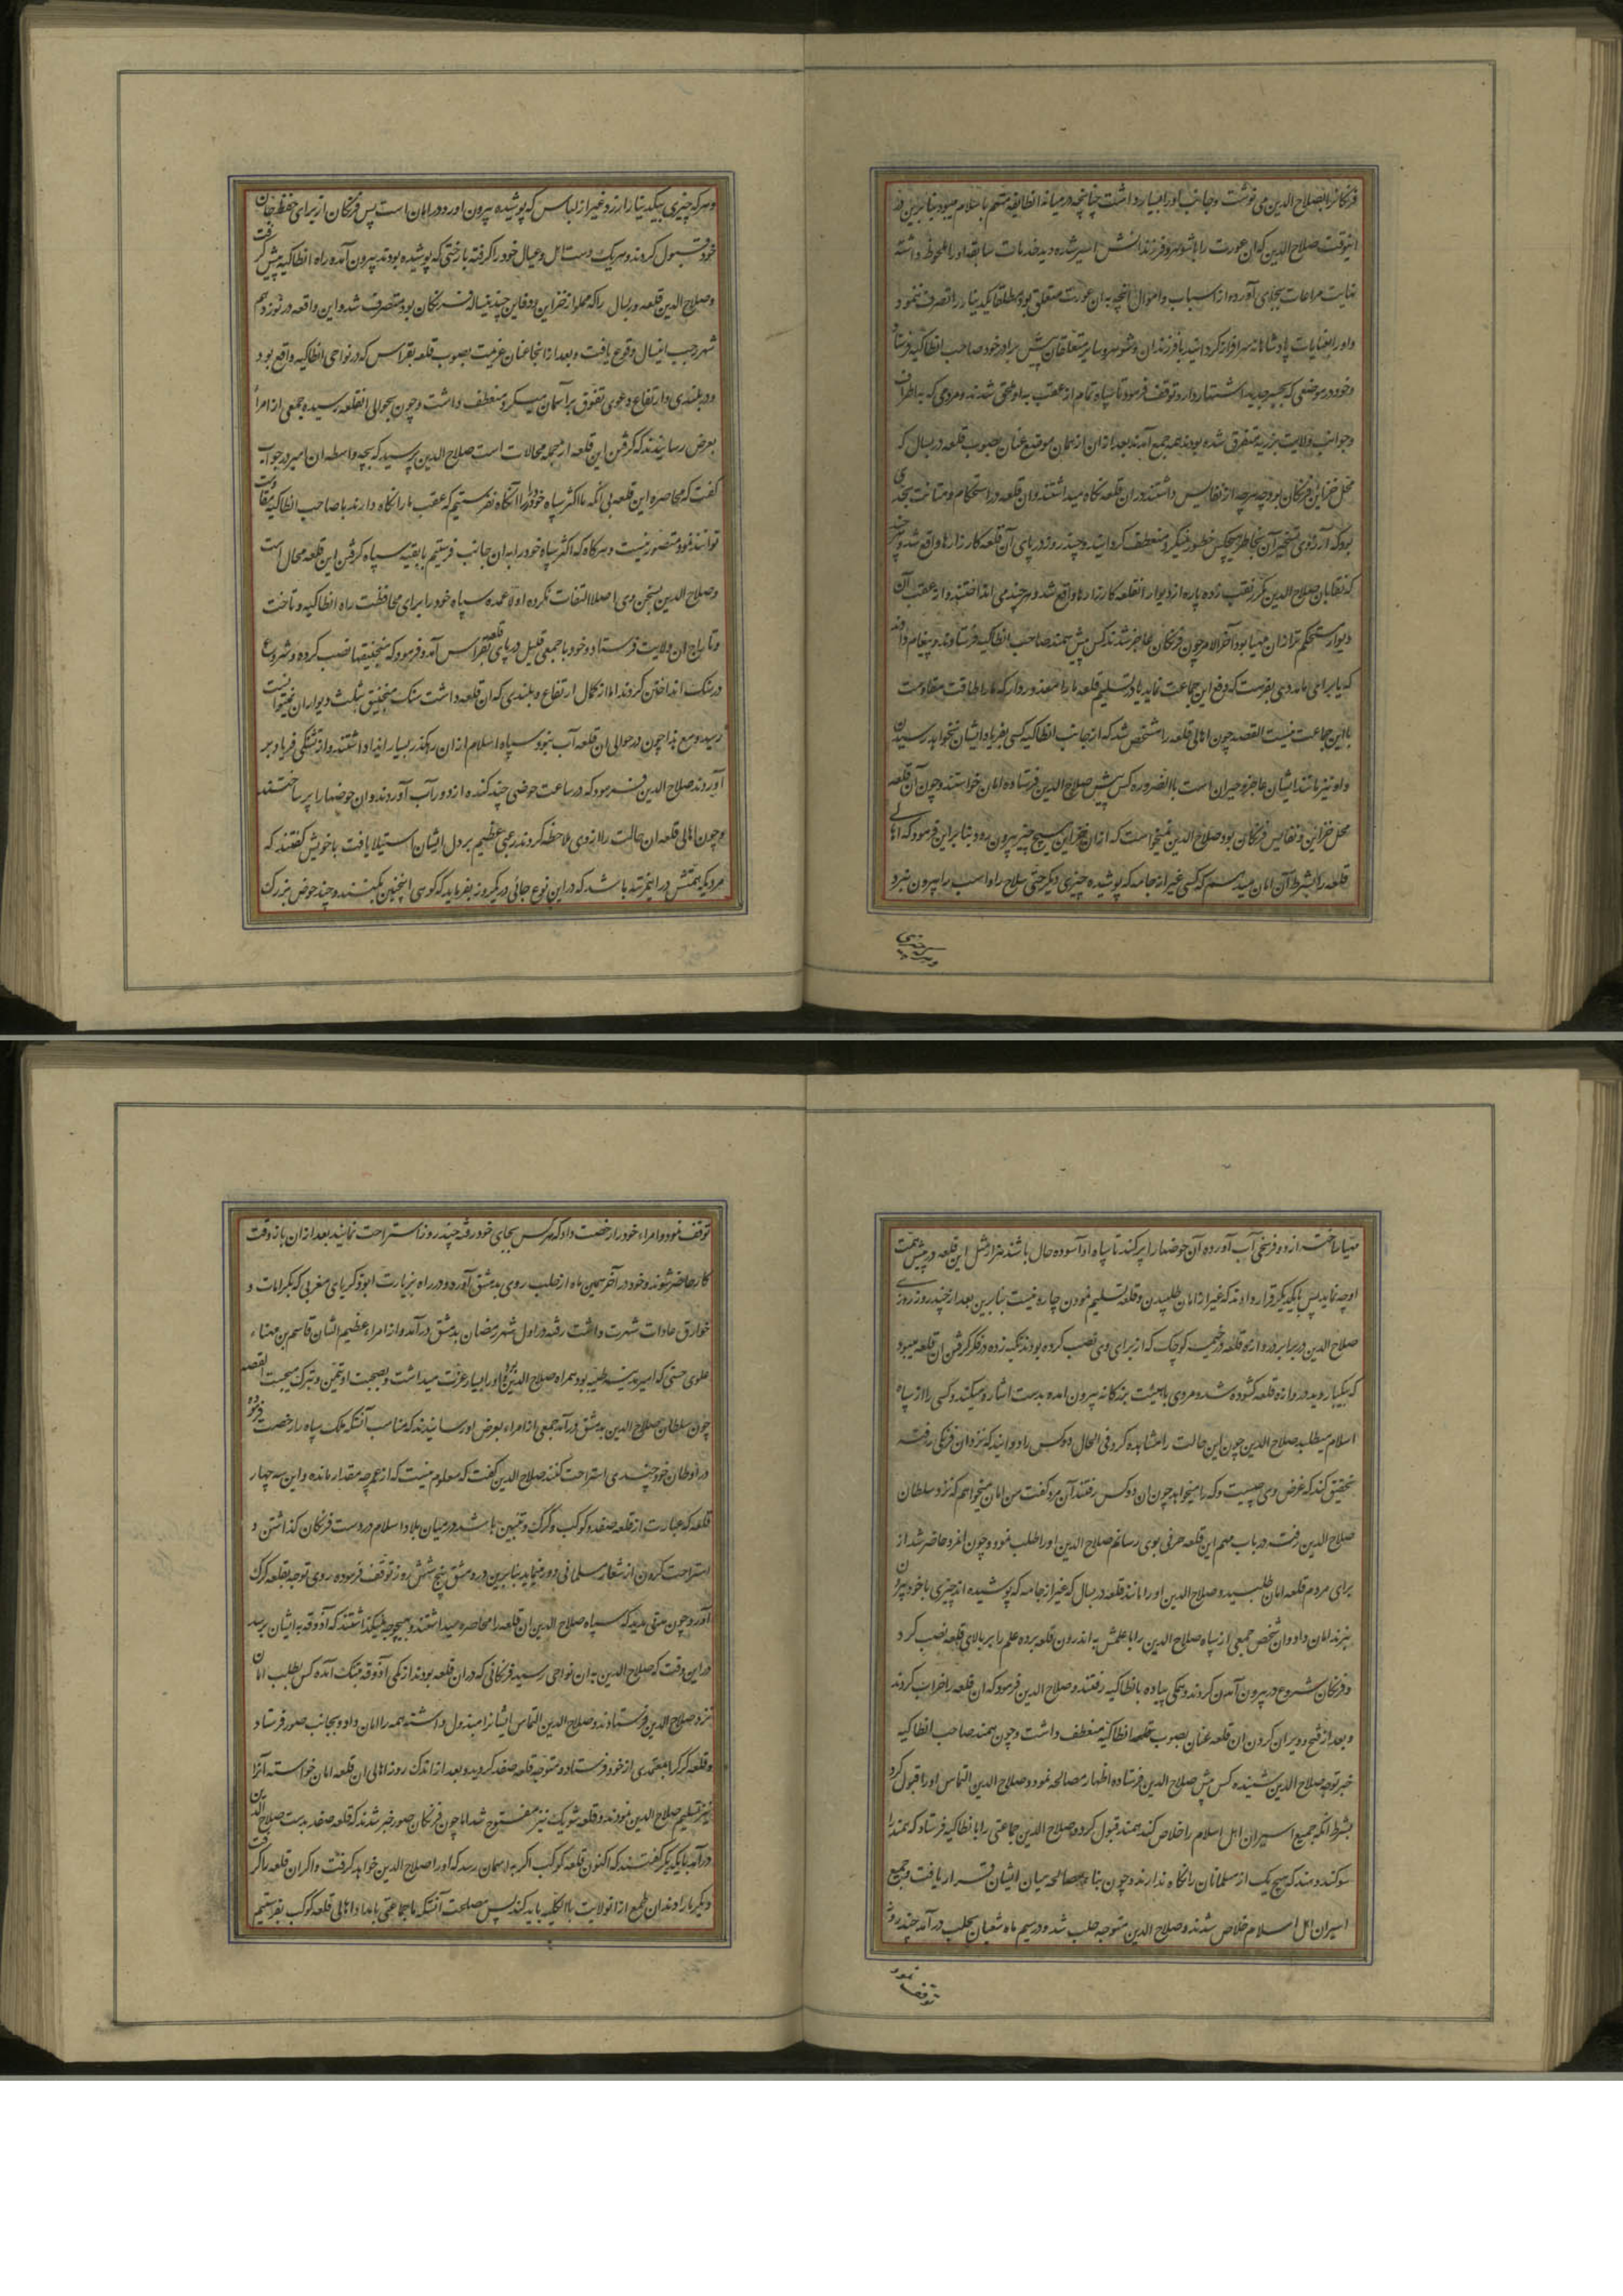 فرنکانرا بصلاح الدین می نوشت وجانب او را بسیار داشت چنانچه در میانه انطایفه متهم باسلام میبود بنابرین در
اینوقت صلاح الدین که ان عورت را با شوهر و فرزندانش اسیر شده دید خدمات سابقه او را ملحوظ داشته
نهایت مراعات بجای آورده از اسباب و اموال انچه به ان عورت متعلق بود مطلقا یکدینار را تصرف ننمود
و او را بعنایات پادشاهانه سرافراز کردانید با فرزندان و شوهر و سایر متعلقان پیش برادر خود صاحب انطاکیه فرستاد
و خود در موضعی که بجسر جدید اشتهار دارد توقف فرمود تا سپاه تمام از عقب به او ملحق شدند و مردمی که به اطراف
و جوانب ولایت برزیه متفرق شده بودند همه جمع آمدند بعد ازان از همان موضع عنان بصوب قلعه دربسال که
محل خزاین فرنکان بود و چه هرچه از نفایس داشتند در ان قلعه نکاه میداشتند و ان قلعه در استحکام و متانت بحدی
بود که آرزوی تسخیر آن بخاطر هیچکس خطور نمیکرد منعطف کردانید و چند روز در پای آن قلعه کارزارها واقع شد و هرچند
که نقابان صلاح الدین مکرر نقب زده پاره از دیوار انقلعه کارزارها واقع شد و هرچند می انداختند و از عقب آن
دیوار مستحکم تر ازان مهیا بود آخر الامر چون فرنکان عاجز شدند کس پیش بیمند صاحب انطاکیه فرستادند و پیغام دادند
که یا برای ما مددی بفرست که دفع این جماعت نماید یا در تسلیم قلعه ما را معذور دار که ما را طاقت مقاومت
با این جماعت نیست القصه چون اهالی قلعه را مشخص شد که از جانب انطاکیه کسی بفریاد ایشان نخواهد رسیدن
و او نیز مانند ایشان عاجز و حیران است باالضروره کس پیش صلاح الدین فرستاده امان خواستند و چون آن قلعه
محل خزاین و نفایس فرنکان بود صلاح الدین نمیخواست که ازان خزاین هیچ چیز بیرون رود بنابراین فرمود که اهالی
قلعه را بشرط آن امان میدهم که کسی غیر از جامه که پوشیده چیزی دیکر حتی سلاح را و اسب را بیرون نبرد
وهرکه چیزی
وهرکه چیزی بیکدینار ارزد و غیر از لباس که پوشیده بیرون اورد و در امان است پس فرنکان از برای حفظ جان
خود قبول کردند و هریک دست اهل و عیال خود را کرفته با رختی که پوشیده بودند بیرون آمده راه انطاکیه پیش کرفت
و صلاح الدین قلعه دربسال را که مملو از خزاین و دفاین چندینساله فرنکان بود متصرف شد و این واقعه در نوزدهم
شهر رجب اینسال وقوع یافت و بعد از انجا عنان عزیمت بصوب قلعه بقراس که در نواحی انطاکیه واقع بود
و در بلندی و ارتفاع دعوی تفوق بر آسمان میکرد منعطف داشت و چون بحوالی انقلعه رسیده جمعی از امراء
بعرض رسانیدند که کرفتن این قلعه از جمله محالات است صلاح الدین پرسید که بچه واسطه ان امیر در جواب
کفت که محاصره این قلعه بی انکه ما اکثر سپاه خود را انکاه نفرستیم که عقب ما را نکاه دارند با صاحب انطاکیه مقاومت
توانند نمود متصور نیست و هرکاه که اکثر سپاه خود را به ان جانب فرستیم با بقیه سپاه کرفتن این قلعه محال است
و صلاح الدین بسخن وی اصلا التفات نکرده اولا عمده سپاه خود را برای محافظت راه انطاکیه و تاخت
و تاراج ان ولایت فرستاد و خود با جمعی قلیل در پای قلعه بقراس آمد و فرمود که منجنیقها نصب کرده و شروع
در سنک انداختن کردند اما از کمال ارتفاع و بلندی که ان قلعه داشت سنک منجنیق بثلث دیوار ان نمیتوانست
رسید و مع هذا چون در حوالی ان قلعه آب نبود سپاه اسلام ازان رهکذر بسیار ایذا داشتند و از تشنکی فریاد بر
آوردند صلاح الدین فرمود که در ساعت حوضی چند کنده از دور آب آوردند و ان حوضها را پر ساختند
و چون اهالی قلعه ان حالت را از وی ملاحظه کردند رعبی عظیم بر دل ایشان استیلا یافت با خویش کفتند که
مردیکه همتش در اینمرتبه باشد که در این نوع جائی در یکروز بفرماید که کوهی اینچنین بکنند و چند حوض بزرک
مهیا ساخته از دو فرسخی آب آورده آن حوضها را پر کنند تا سپاه او آسوده حال باشند هزار مثل این قلعه در پیش همت
او چه نماید پس با یکدیکر قرار دادند که غیر از امان طلبیدن و قلعه تسلیم نمودن چاره نیست بنابرین بعد از چند روز روزی
صلاح الدین در برابر دروازه قلعه در خیمه کوچک که از برای وی نصب کرده بودند تکیه زده در فکر کرفتن ان قلعه میبود
که بیکبار دید دروازه قلعه کشوده شد و مردی با هیئت بندکانه بیرون امده بدست اشاره میکند و کسی را از سپاه
اسلام میطلبد صلاح الدین چون این حالت را مشاهده کرد فی الحال دو کس را دوانید که نزد ان فرنکی رفته
تحقیق کنند که غرض وی چیست و کرا میخواهد چون ان دو کس رفتند آن مرد کفت من امان میخواهم که نزد سلطان
صلاح الدین رفته در باب مهم این قلعه حرفی بوی رسانم صلاح الدین او را طلب نمود و چون انمرد حاضر شد از
برای مردم قلعه امان طلبید و صلاح الدین او را مانند قلعه دربسال که غیر از جامه که پوشیده اند چیزی با خود بیرون
نبرند امان داد و ان شخص جمعی از سپاه صلاح الدین را با علمش به اندرون قلعه برده علم را بر بالای قلعه نصب کرد
و فرنکان شروع در بیرون آمدن کردند و همکی پیاده بانطاکیه رفتند و صلاح الدین فرمود که ان قلعه را خراب کردند
و بعد از فتح و ویران کردن ان قلعه عنان بصوب قلعه انطاکیه منعطف داشت و چون بیمند صاحب انطاکیه
خبر توجه صلاح الدین شنیده کس پیش صلاح الدین فرستاده اظهار مصالحه نمود و صلاح الدین التماس او را قبول کرد
بشرط انکه جمیع اسیران اهل اسلام را خلاص کند بیمند قبول کرد و صلاح الدین جماعتی را با انطاکیه فرستاد که بیمند را
سوکند دهند که هیچ یک از مسلمانان را نکاه ندارند و چون بناء مصالحه میان ایشان قرار یافت و جمیع
اسیران اهل اسلام خلاص شدند و صلاح الدین متوجه حلب شد و در سیم ماه شعبان بحلب در آمد چند روز
توقف نمود
توقف نمود و امراء خود را رخصت داد که هرکس بجای خود رفته چند روز استراحت نمایند بعد ازان باز وقت
کار حاضر شوند و خود در آخر همین ماه از حلب روی بدمشق آورده و در راه بزیارت ابوذکریای مغربی که بکرامات و
خوارق عادات شهرت داشت رفته در اول شهر رمضان بدمشق در آمد و از امراء عظیم الشان قاسم بن مهناء
علوی حسنی که امیر مدینه طیبه بود همراه صلاح الدین بود و او را بسیار عزت میداشت و بصحبت او تیمن و تبرک میجست القصه
چون سلطان صلاح الدین بدمشق در آمد جمعی از امراء بعرض او رسانیدند که مناسب آنستکه ملک سپاه را رخصت فرموده
در اوطان خود چندی استراحت کنند صلاح الدین کفت که معلوم نیست که از عمر چه مقدار مانده و این سه چهار
قلعه که عبارت از قلعه صفد و کوکب و کرک و تبنین باشد در میان بلاد اسلام در دست فرنکان کذاشتن و
استراحت کردن از شعار مسلمانی دور مینماید بنابرین در دمشق پنج شش روز توقف فرموده روی توجه بقلعه کرک
آورد و چون مدتی مدید که سپاه صلاح الدین ان قلعه را محاصره میداشتند و بهیچوجه نمیکذاشتند که آذوقه به ایشان برسد
در این وقت که صلاح الدین به ان نواحی رسید فرنکانی که در ان قلعه بودند از کمی آذوقه بتنک آمده کس بطلب امان
نزد صلاح الدین فرستادند و صلاح الدین التماس ایشانرا مبذول داشته همه را امان داد و بجانب صور فرستاد
و قلعه کرک را بمعتمدی از خود فرستاد و متوجه قلعه صفد کردید و بعد از اندک روز اهالی ان قلعه امان خواسته آنرا
نیز تسلیم صلاح الدین نمودند و قلعه شوبک نیز مفتوح شد اما چون فرنکان صور خبر شدند که قلعه صفد بدست صلاح الدین
در آمد با یکدیکر کفتند که اکنون قلعه کوکب اکر به اسمان رسد که او را صلاح الدین خواهد کرفت و اکر ان قلعه را کرفت
دیکر ما را دندان طمع از انولایت باالکلیه باید کند پس مصلحت آنستکه ما جماعتی بامداد اهالی قلعه کوکب بفرستیم